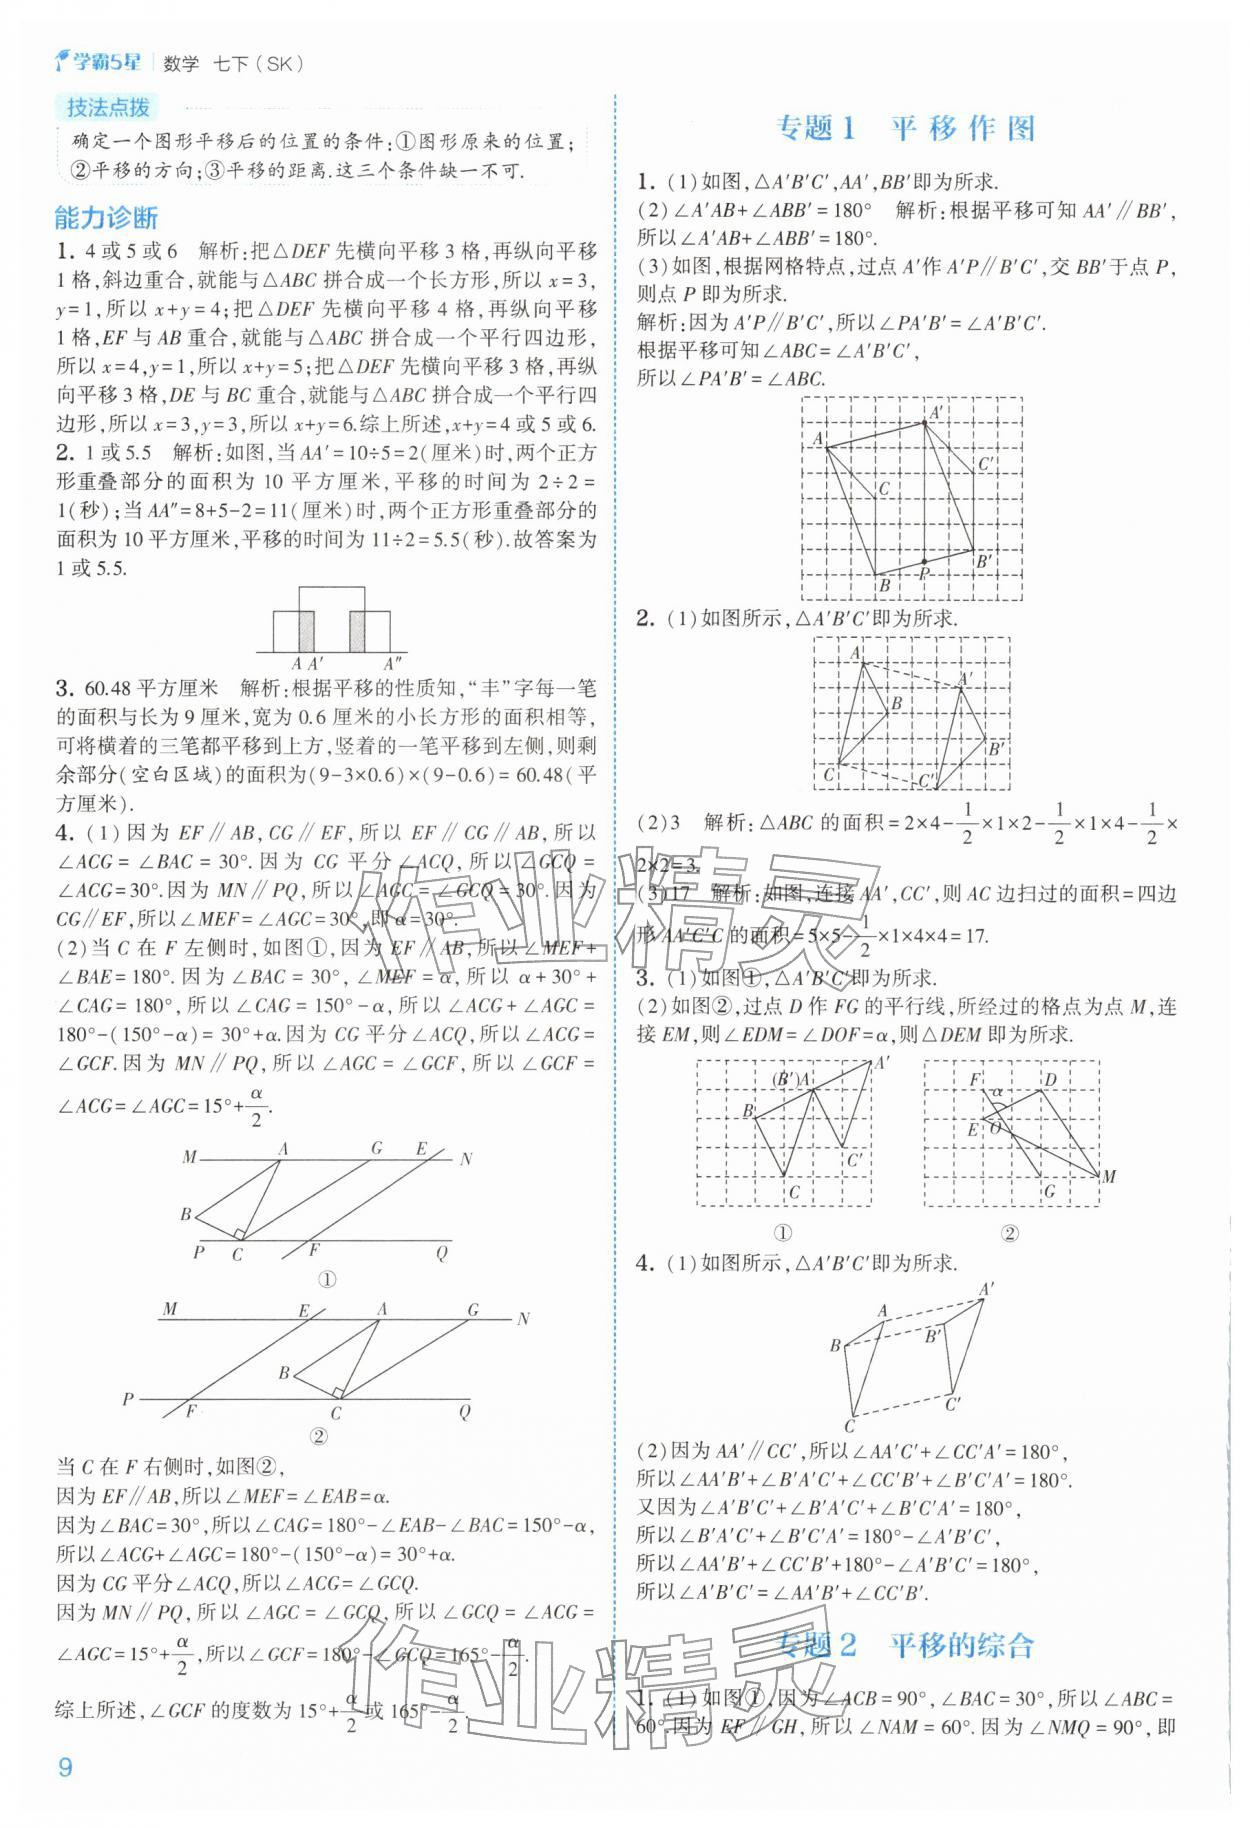 学霸5星 数学 七下(SK)
技法点拨
确定一个图形平移后的位置的条件:①图形原来的位置;
②平移的方向;③平移的距离.这三个条件缺一不可.
能力诊断
1. 4或5或6 解析:把△DEF先横向平移3格,再纵向平移
1格,斜边重合,就能与△ABC拼合成一个长方形,所以x=3,
y=1,所以x+y=4;把△DEF先横向平移4格,再纵向平移
1格,EF与AB重合,就能与△ABC拼合成一个平行四边形,
所以x=4,y=1,所以x+y=5;把△DEF先横向平移3格,再纵
向平移3格,DE与BC重合,就能与△ABC拼合成一个平行四
边形,所以x=3,y=3,所以x+y=6.综上所述,x+y=4或5或6.
2. 1或5.5 解析:如图,当AA′=10÷5=2(厘米)时,两个正方
形重叠部分的面积为10平方厘米,平移的时间为2÷2=
1(秒);当AA″=8+5-2=11(厘米)时,两个正方形重叠部分的
面积为10平方厘米,平移的时间为11÷2=5.5(秒).故答案为
1或5.5.
A A′ A″
3. 60.48平方厘米 解析:根据平移的性质知,“丰”字每一笔
的面积与长为9厘米,宽为0.6厘米的小长方形的面积相等,
可将横着的三笔都平移到上方,竖着的一笔平移到左侧,则剩
余部分(空白区域)的面积为(9-3×0.6)×(9-0.6)=60.48(平
方厘米).
4. (1)因为EF∥AB,CG∥EF,所以EF∥CG∥AB,所以
∠ACG=∠BAC=30°.因为CG平分∠ACQ,所以∠GCQ=
∠ACG=30°.因为MN∥PQ,所以∠AGC=∠GCQ=30°.因为
CG∥EF,所以∠MEF=∠AGC=30°,即α=30°.
(2)当C在F左侧时,如图①,因为EF∥AB,所以∠MEF+
∠BAE=180°.因为∠BAC=30°,∠MEF=α,所以α+30°+
∠CAG=180°,所以∠CAG=150°-α,所以∠ACG+∠AGC=
180°-(150°-α)=30°+α.因为CG平分∠ACQ,所以∠ACG=
∠GCF.因为MN∥PQ,所以∠AGC=∠GCF,所以∠GCF=
∠ACG=∠AGC=15°+α/2.
M A G E N
B
P C F Q
①
M E A G N
B
P F C Q
②
当C在F右侧时,如图②,
因为EF∥AB,所以∠MEF=∠EAB=α.
因为∠BAC=30°,所以∠CAG=180°-∠EAB-∠BAC=150°-α,
所以∠ACG+∠AGC=180°-(150°-α)=30°+α.
因为CG平分∠ACQ,所以∠ACG=∠GCQ.
因为MN∥PQ,所以∠AGC=∠GCQ,所以∠GCQ=∠ACG=
∠AGC=15°+α/2,所以∠GCF=180°-∠GCQ=165°-α/2.
综上所述,∠GCF的度数为15°+α/2或165°-α/2.
9
专题1 平移作图
1. (1)如图,△A′B′C′,AA′,BB′即为所求.
(2)∠A′AB+∠ABB′=180° 解析:根据平移可知AA′∥BB′,
所以∠A′AB+∠ABB′=180°.
(3)如图,根据网格特点,过点A′作A′P∥B′C′,交BB′于点P,
则点P即为所求.
解析:因为A′P∥B′C′,所以∠PA′B′=∠A′B′C′.
根据平移可知∠ABC=∠A′B′C′,
所以∠PA′B′=∠ABC.
A′
A
C′
C
B′
P
B
2. (1)如图所示,△A′B′C′即为所求.
A
A′
B
B′
C
C′
(2)3 解析:△ABC的面积=2×4-1/2×1×2-1/2×1×4-1/2×
2×2=3.
(3)17 解析:如图,连接AA′,CC′,则AC边扫过的面积=四边
形AA′C′C的面积=5×5-1/2×1×4×4=17.
3. (1)如图①,△A′B′C′即为所求.
(2)如图②,过点D作FG的平行线,所经过的格点为点M,连
接EM,则∠EDM=∠DOF=α,则△DEM即为所求.
A′
(B′)A
B
C′
C
①
F α D
E O
M
G
②
4. (1)如图所示,△A′B′C′即为所求.
A′
A
B′
B
C′
C
(2)因为AA′∥CC′,所以∠AA′C′+∠CC′A′=180°,
所以∠AA′B′+∠B′A′C′+∠CC′B′+∠B′C′A′=180°.
又因为∠A′B′C′+∠B′A′C′+∠B′C′A′=180°,
所以∠B′A′C′+∠B′C′A′=180°-∠A′B′C′,
所以∠AA′B′+∠CC′B′+180°-∠A′B′C′=180°,
所以∠A′B′C′=∠AA′B′+∠CC′B′.
专题2 平移的综合
1. (1)如图①,因为∠ACB=90°,∠BAC=30°,所以∠ABC=
60°.因为EF∥GH,所以∠NAM=60°.因为∠NMQ=90°,即
作业精灵
作业精灵